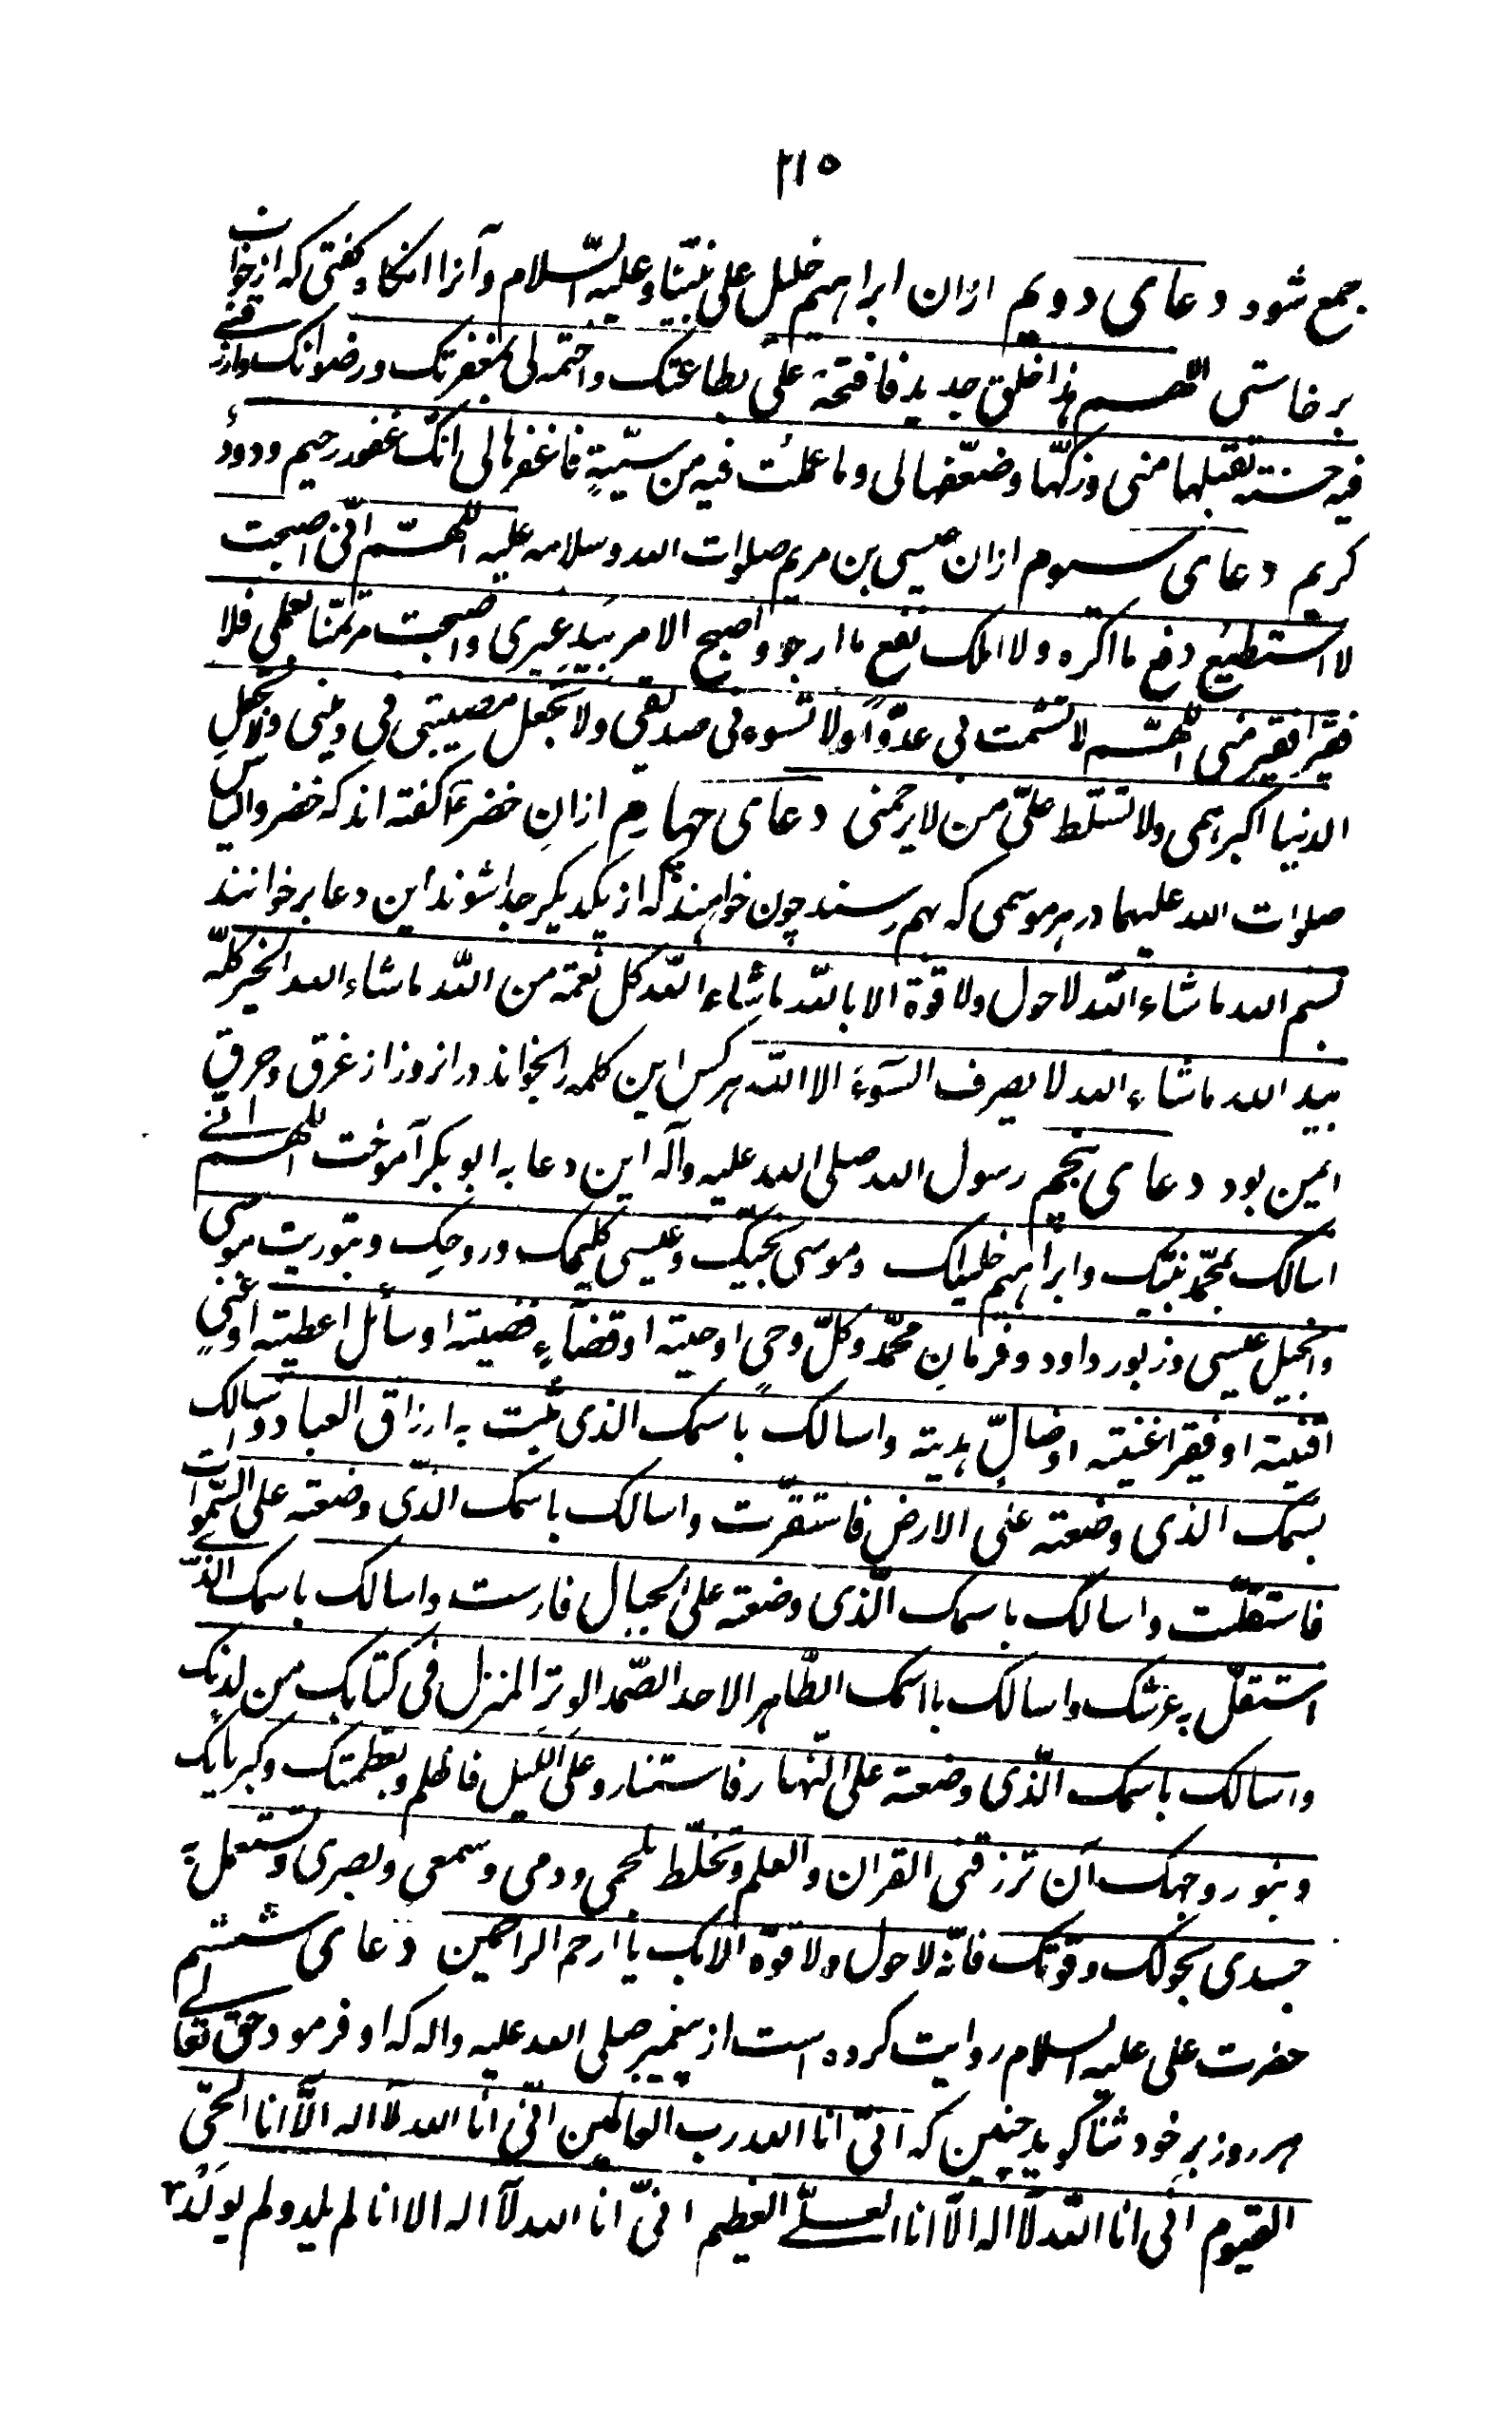 ٢١٥
جمع شود دعای دویم ازان ابراهیم خلیل علی نبیّنا و علیه السّلام و آنرا انگاه گفتی که از خواب
برخاستی اللّهم هذا خلق جدید فافتحه علیّ بطاعتک و اختمه لی بمغفرتک و رضوانک و ارزقنی
فیه حسنته تقبلها منی وزکّها وضعّفها لی وما عملت فیه من سیّئةٍ فاغفرها لی انّک غفور رحیم ودودٌ
کریم دعای سوم ازان عیسی بن مریم صلوات الله وسلامه علیه اللّهمّ انّی اصبحت
لا استطیع دفع ما اکره ولا املک نفع ما ارجو واصبح الامر بیدِ غیری واصبحت مرتهنًا بعملی فلا
فقیرا فقیر منی اللّهمّ لا تشمت بی عدوّاً ولا تسوء بی صدیقی ولا تجعل مصیبتی فی دینی ولا تجعلِ
الدنیا اکبر همی ولا تسلّط علیّ من لا یرحمنی دعای چهارم ازانِ خضرع گفته اند که خضر والیاس
صلوات الله علیهما در هر موسمی که بهم رسند چون خواهند که از یکدیگر جدا شوند این دعا برخوانند
بسم الله ما شاء الله لا حول ولا قوة الا بالله ما شاء الله کل نعمة من الله ما شاء الله الخیر کلّه
بید الله ما شاء الله لا یصرف السّوءَ الا الله هر کس این کلمه را بخواند در انروز از غرق و حرق
ایمن بود دعای پنجم رسول الله صلی الله علیه وآله این دعا به ابوبکر آموخت اللّهم انّی
اسالک بمحمّد نبیّک وابراهیم خلیلک وموسی نجیّک وعیسی کلیمک وروحِک وبتوریت موسی
وانجیل عیسی وزبور داود وفرمانِ محمّد وکلّ وحیٍ اوحیته او قضآءٍ قضیته او سآئل اعطیته او غنیٍ
اقنیته او فقیرا غنیته او ضالٍّ هدیته واسالک باسمک الذی ثبت به ارزاق العباد واسالک
بسمک الذی وضعته علی الارض فاستقرّت واسالک باسمک الذّی وضعته علی السّموات
فاستقلّت واسالک باسمک الّذی وضعته علی الجبال فارست واسالک باسمک الذّی
استقلّ به عرشک واسالک بااسمک الطّاهر الاحد الصّمد الوتر المنزل فی کتابک من لدنک
واسالک باسمک الّذی وضعته علی النّهار فاستنار وعلی اللیل فاظلم وبعظمتک وکبریایک
وبنور وجهک ان ترزقنی القران والعلم وتخلّط بلحمی ودمی وسمعی وبصری وتستعمل به
جسدی بحولک وقوتک فانّه لا حول ولا قوّة الّا بک یا ارحم الراحمین دعای ششم
حضرت علی علیه السلام روایت کرده است از پیغمبر صلی الله علیه واله که او فرمود حق تعالی
هر روز بر خود ثنا گوید چنین که انّی انا الله رب العالمین انّی انا الله لا اله الّا انا الحیّ
القیوم انّی انا الله لآ اله الّا انا العلیّ العظیم انّی انا الله لآ اله الا انا لم یلد ولم یولد